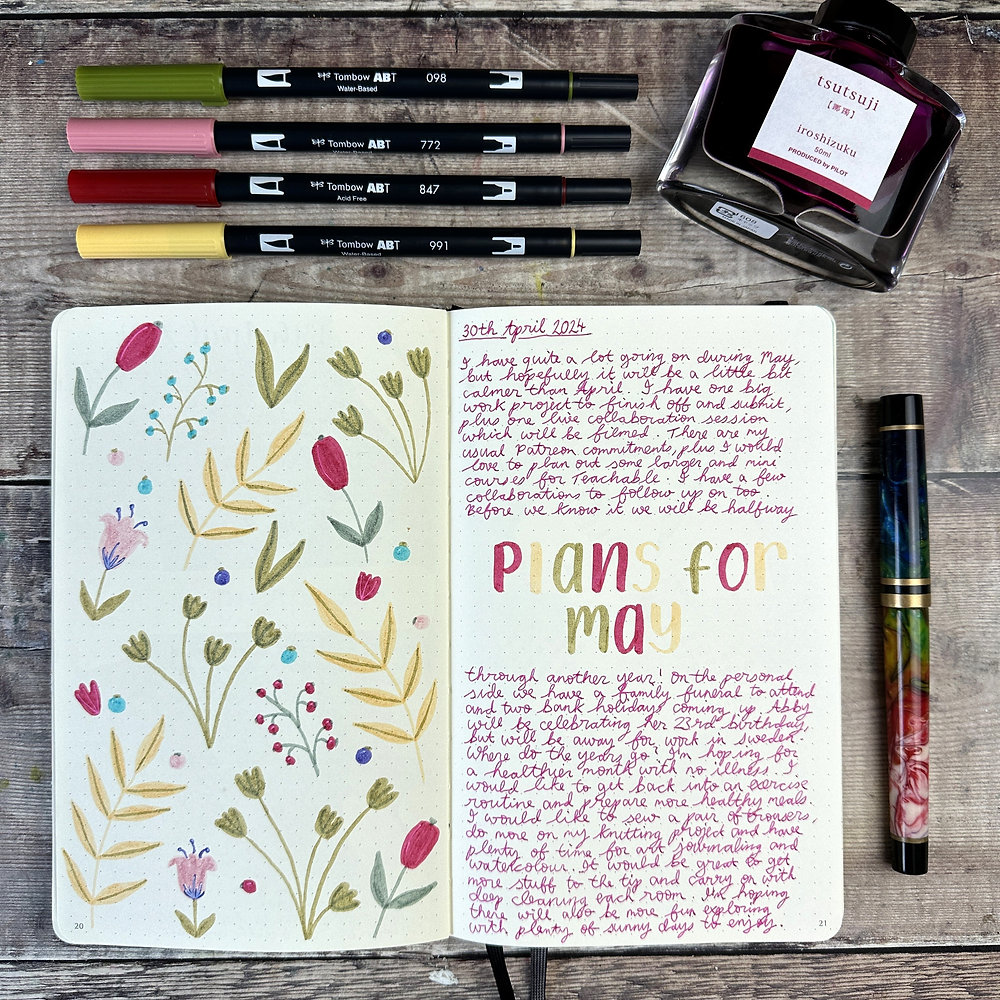 Tombow ABT 098
Water-Based
Tombow ABT 772
Water-Based
Tombow ABT 847
Acid Free
Tombow ABT 991
Water-Based
tsutsuji
iroshizuku
50ml
PRODUCED by PILOT
30th April 2024
I have quite a lot going on during May,
but hopefully it will be a little bit
calmer than April. I have one big
work project to finish off and submit,
plus one live collaboration session
which will be filmed. There are my
usual Patreon commitments, plus I would
love to plan out some larger and mini
courses for Teachable. I have a few
collaborations to follow up on too.
Before we know it we will be halfway
plans for
may
through another year! On the personal
side we have a family funeral to attend
and two bank holidays coming up. Abby
will be celebrating her 23rd birthday,
but will be away for work in Sweden.
Where do the years go! I'm hoping for
a healthyer month with no illness. I
would like to get back into an exercise
routine and prepare more healthy meals.
I would like to sew a pair of trousers,
do more on my knitting project and have
plenty of time for art journaling and
watercolour. It would be great to get
more stuff to the tip and carry on with
deep cleaning each room. I'm hoping
there will also be more fun exploring
with plenty of sunny days to enjoy.
20
21